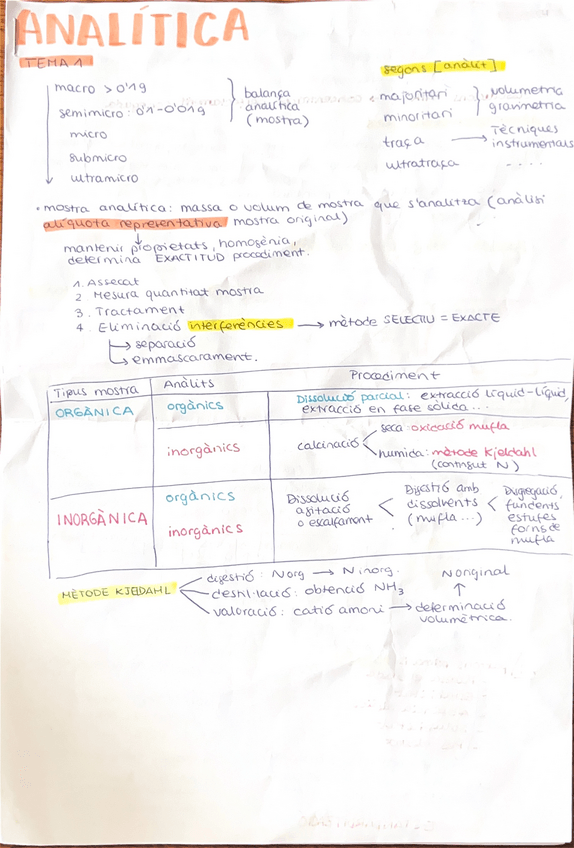 ANALÍTICA
TEMA 1
macro > 0'1g
semimicro: 0'1-0'01g
micro
submicro
ultramicro
balança
analítica
(mostra)
segons [anàlit]
majoritari
minoritari
volumetria
gravimetria
traça → Tècniques
instrumentals
ultratraça ....
• mostra analítica: massa o volum de mostra que s'analitza (anàlisi
alíquota representativa mostra original)
mantenir propietats, homogènia,
determina EXACTITUD procediment.
1. Assecat
2 Mesura quantitat mostra
3. Tractament
4. Eliminació interferències → mètode SELECTIU = EXACTE
separació
emmascarament.
Tipus mostra Anàlits Procediment
ORGÀNICA orgànics Dissolució parcial: extracció líquid-líquid,
extracció en fase sòlida...
inorgànics calcinació
seca: oxidació mufla
humida: mètode Kjeldahl
(contingut N)
INORGÀNICA
orgànics
inorgànics
Dissolució
agitació
o escalfament
Digestió amb
dissolvents
(mufla...)
Disgregació,
fundents
estufes
forns de
mufla
MÈTODE KJELDAHL
digestió: Norg → Ninorg.
destil·lació: obtenció NH3
valoració: catió amoni → determinació
volumètrica.
Noriginal